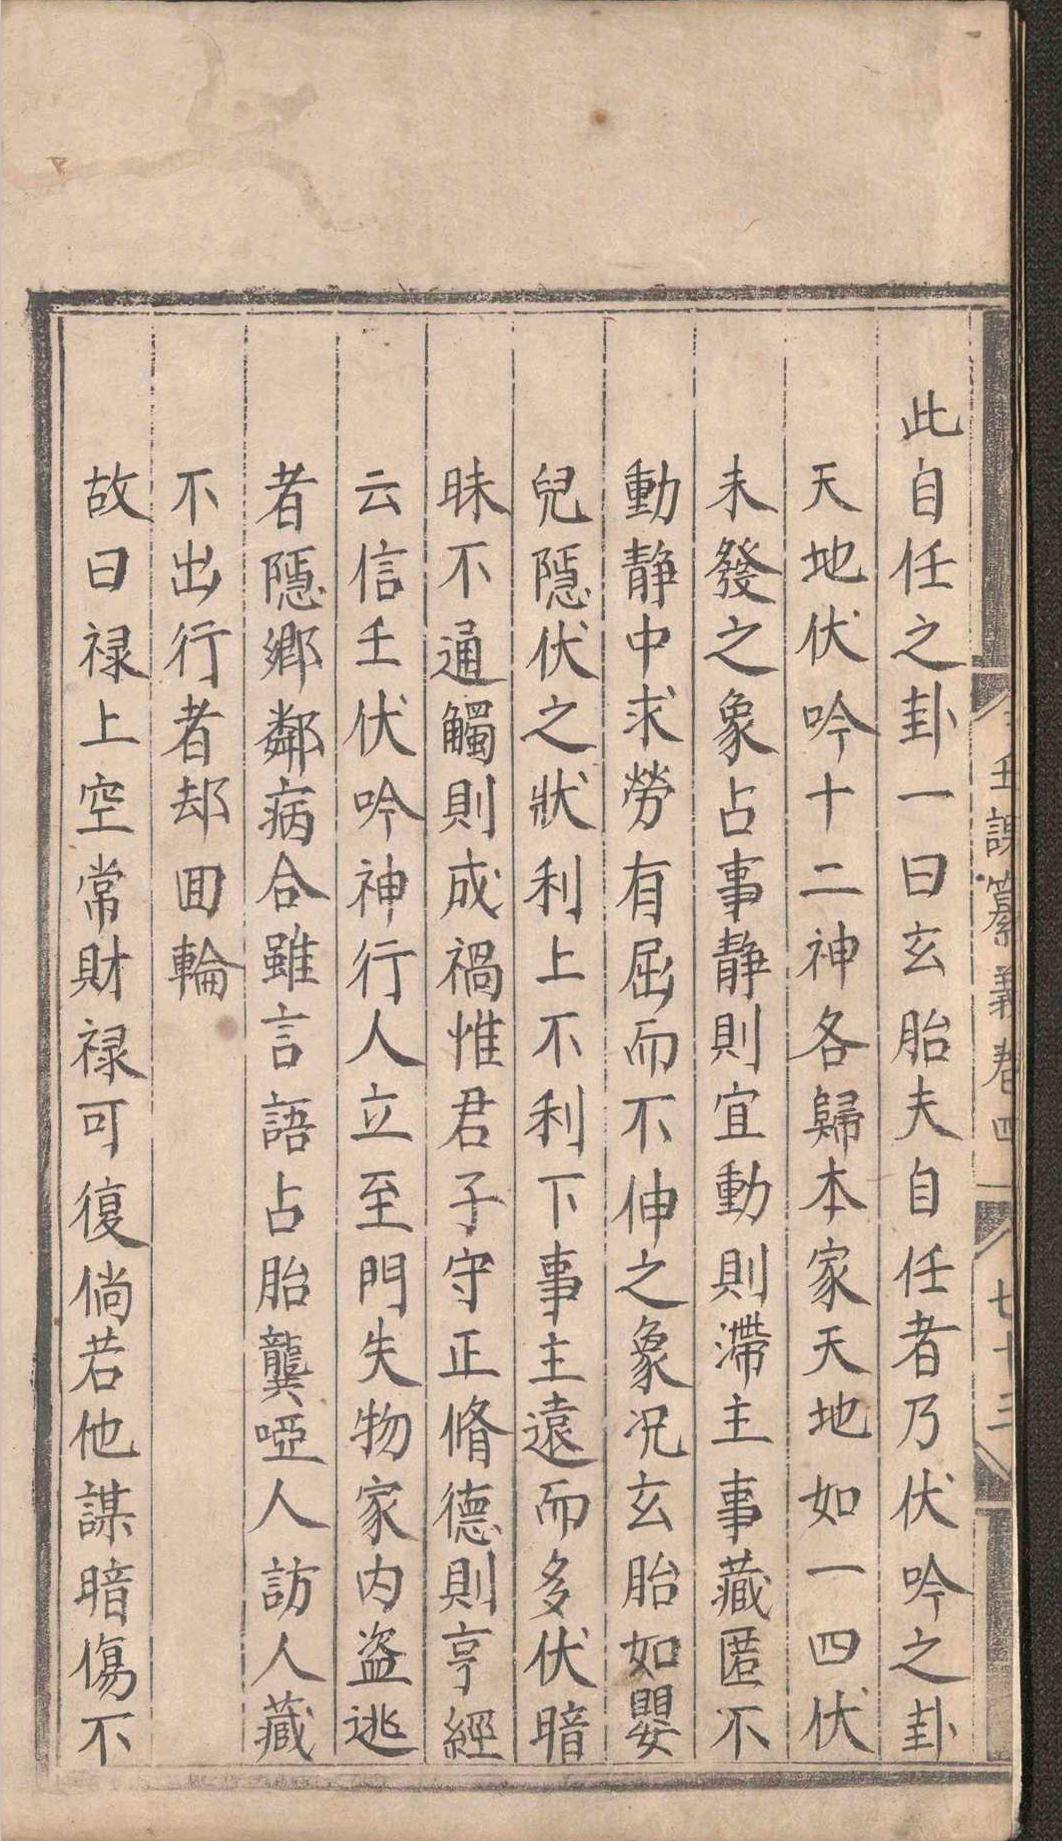 壬課纂義卷四 七十三
此自任之卦一曰玄胎夫自任者乃伏吟之卦
天地伏吟十二神各歸本家天地如一四伏
未發之象占事静則宜動則滯主事藏匿不
動静中求勞有屈而不伸之象况玄胎如嬰
兒隱伏之狀利上不利下事主遠而多伏暗
昧不通觸則成禍惟君子守正脩德則亨經
云信壬伏吟神行人立至門失物家内盗逃
者隱鄉鄰病合雖言語占胎龔啞人訪人藏
不出行者却囬輪
故曰禄上空常財禄可復倘若他謀暗傷不